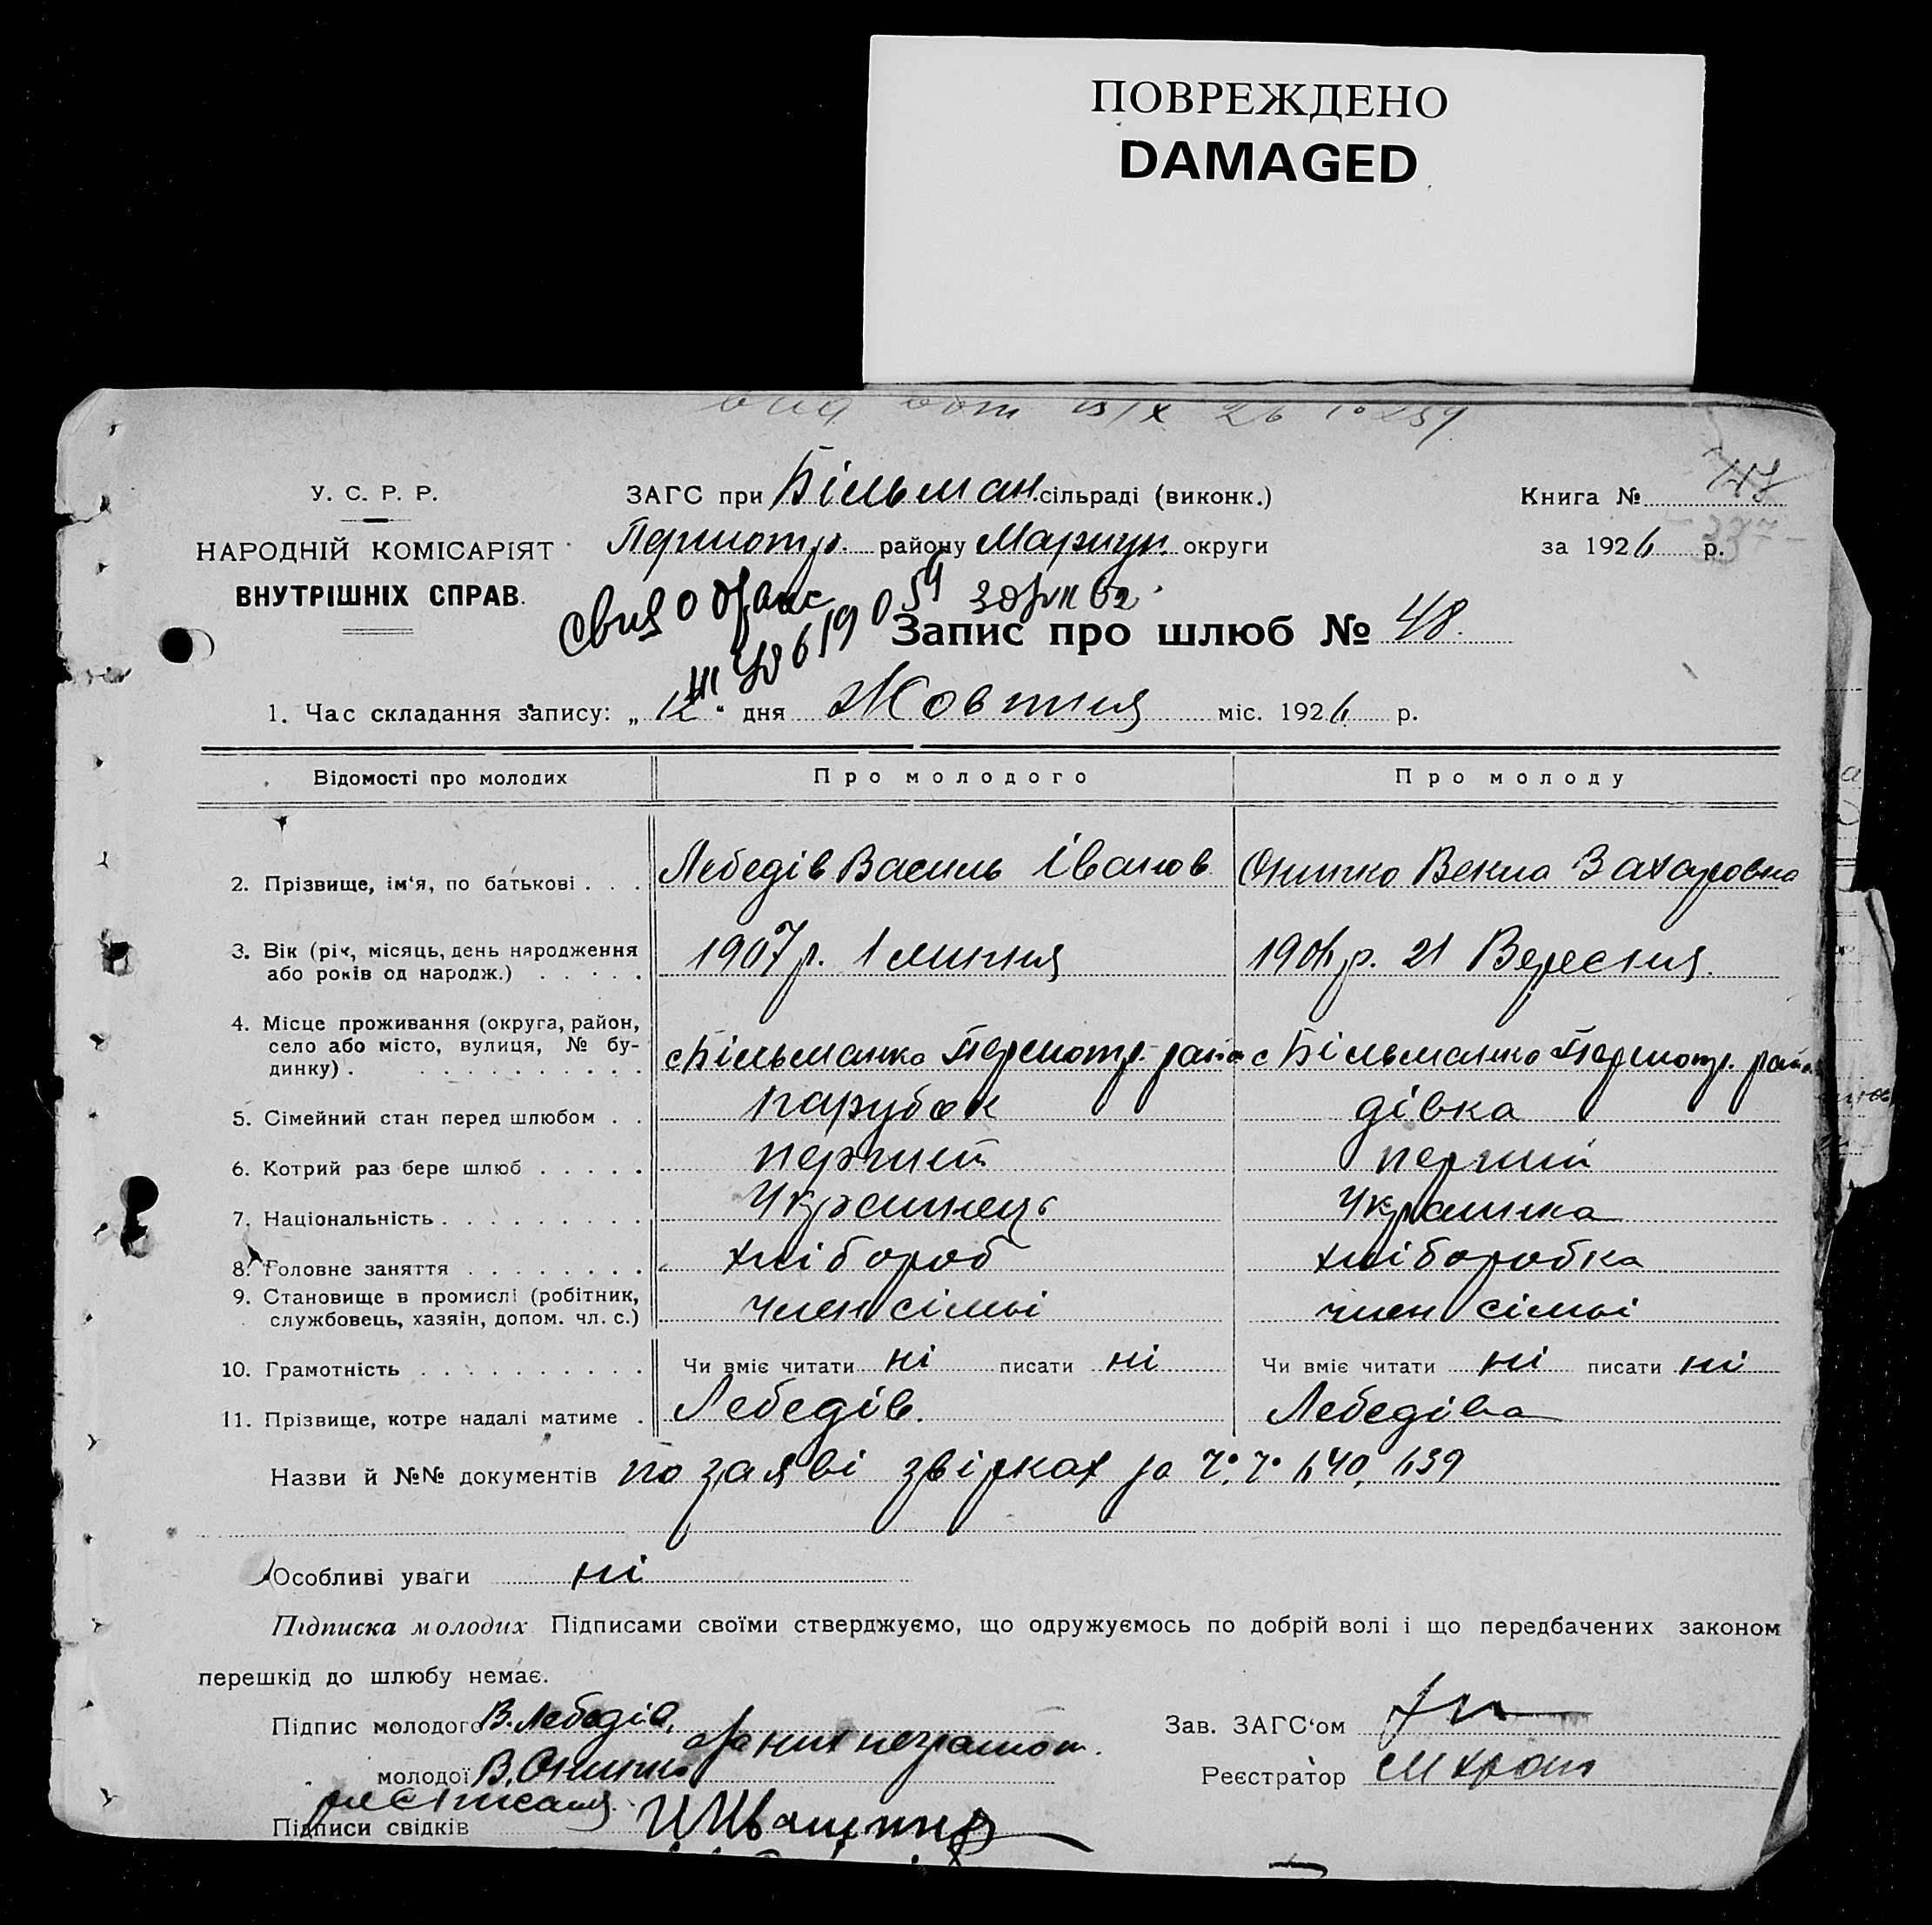 ПОВРЕЖДЕНО
DAMAGED
У. С. Р. Р.
НАРОДНІЙ КОМІСАРІЯТ
ВНУТРІШНІХ СПРАВ.
ЗАГС при Більман. сільраді (виконк.)
Першотр. району Маріуп. округи
Книга №
за 1926 р.
Запис про шлюб № 48.
1. Час складання запису: „12“ дня Жовтня міс. 1926 р.
Відомості про молодих Про молодого Про молоду
2. Прізвище, ім‘я, по батькові . . . Лебедів Василь Іванов Онишко Векла Захаровна
3. Вік (рік, місяць, день народження
або років од народж.) . . . . . 1907 р. 1 липня 1906 р. 21 Вересня.
4. Місце проживання (округа, район,
село або місто, вулиця, № бу-
динку) . . . . . . . . . . с Більманка Першотр. район с Більманка Першотр. район
5. Сімейний стан перед шлюбом . . парубок дівка
6. Котрий раз бере шлюб . . . . . перший перший
7. Національність . . . . . . . . . Українець Українка
8. Головне заняття . . . . . . . . хлібороб хліборобка
9. Становище в промислі (робітник,
службовець, хазяін, допом. чл. с.) член сімьі член сімьі
10. Грамотність . . . . . . . . . . Чи вміє читати ні писати ні Чи вміє читати ні писати ні
11. Прізвище, котре надалі матиме . Лебедів. Лебедіва
Назви й №№ документів по заяві звірках за ч. ч. 640, 639
Особливі уваги ні
Підписка молодих Підписами своїми стверджуємо, що одружуємось по добрій волі і що передбачених законом
перешкід до шлюбу немає.
Підпис молодого В. Лебедів,
молодої В. Онишко за них неграмотн.
расписался
Підписи свідків
Зав. ЗАГС‘ом
Реєстратор